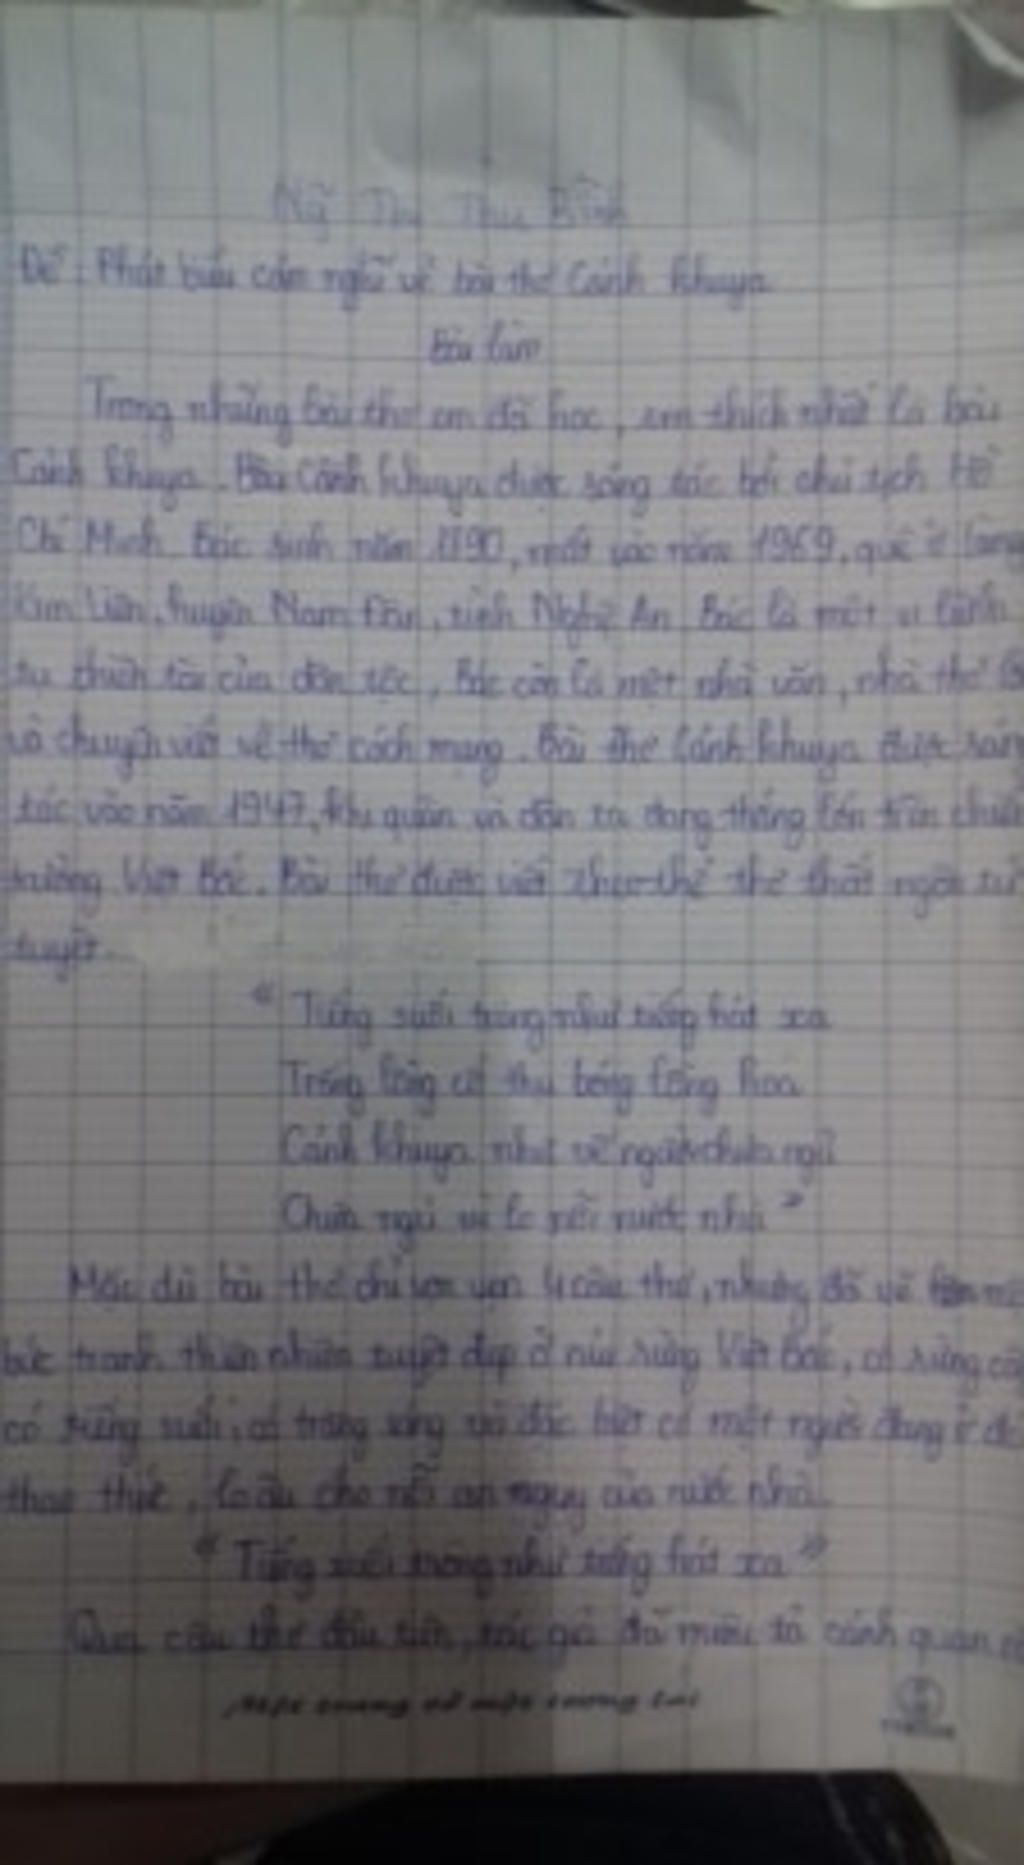 Thu
Đề: Phát biểu cảm nghĩ về bài thơ Cảnh khuya
Bài làm
Trong những bài thơ em đã học, em thích nhất là bài
Cảnh khuya. Bài Cảnh khuya được sáng tác bởi chủ tịch Hồ
Chí Minh. Bác sinh năm 1890, mất vào năm 1969, quê ở làng
Kim Liên, huyện Nam Đàn, tỉnh Nghệ An. Bác là một vị lãnh
tụ thiên tài của dân tộc, Bác còn là một nhà văn, nhà thơ
và chuyên viết về thơ cách mạng. Bài thơ Cảnh khuya được sáng
tác vào năm 1947, khi quân và dân ta đang thắng lớn trên chiến
trường Việt Bắc. Bài thơ được viết theo thể thơ thất ngôn tứ
tuyệt.
" Tiếng suối trong như tiếng hát xa
Trăng lồng cổ thụ bóng lồng hoa
Cảnh khuya như vẽ người chưa ngủ
Chưa ngủ vì lo nỗi nước nhà "
Mặc dù bài thơ chỉ vẻn vẹn 4 câu thơ, nhưng đã vẽ
bức tranh thiên nhiên tuyệt đẹp ở núi rừng Việt Bắc, có rừng
có tiếng suối, có trăng sáng và đặc biệt có một người đang ở
thao thức, lo âu cho nỗi an nguy của nước nhà.
" Tiếng suối trong như tiếng hát xa "
Qua câu thơ đầu tiên, tác giả đã miêu tả cảnh quan